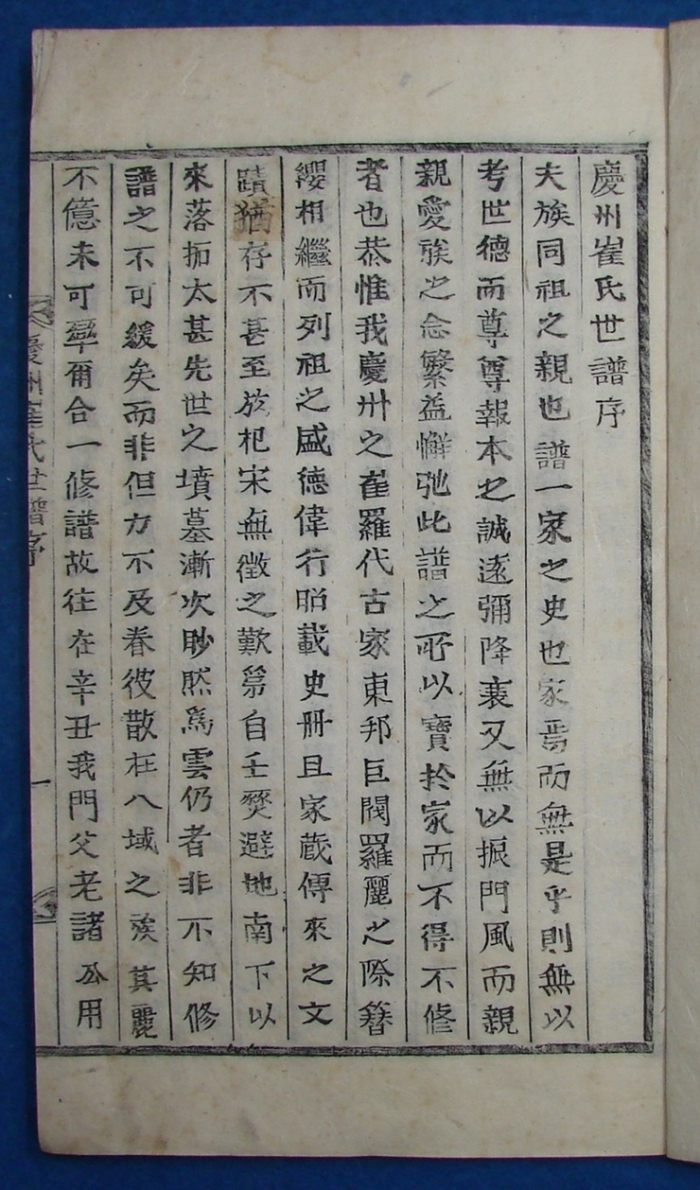 慶州崔氏世譜序
夫族同祖之親也譜一家之史也家焉而無是乎則無以
考世德而尊尊報本之誠逺彌降衰又無以振門風而親
親愛族之念繁益懈弛此譜之所以寶於家而不得不修
者也恭惟我慶州之崔羅代古家東邦巨閥羅麗之際簪
纓相繼而列祖之盛德偉行昭載史冊且家蔵傳來之文
蹟猶存不甚至於杞宋無徵之歎第自壬燹避地南下以
來落拓太甚先世之墳墓漸次眇然爲雲仍者非不知修
譜之不可緩矣而非但力不及眷彼散在八域之族其麗
不億未可卒爾合一修譜故往在辛丑我門父老諸公用
慶州崔氏世譜序
一